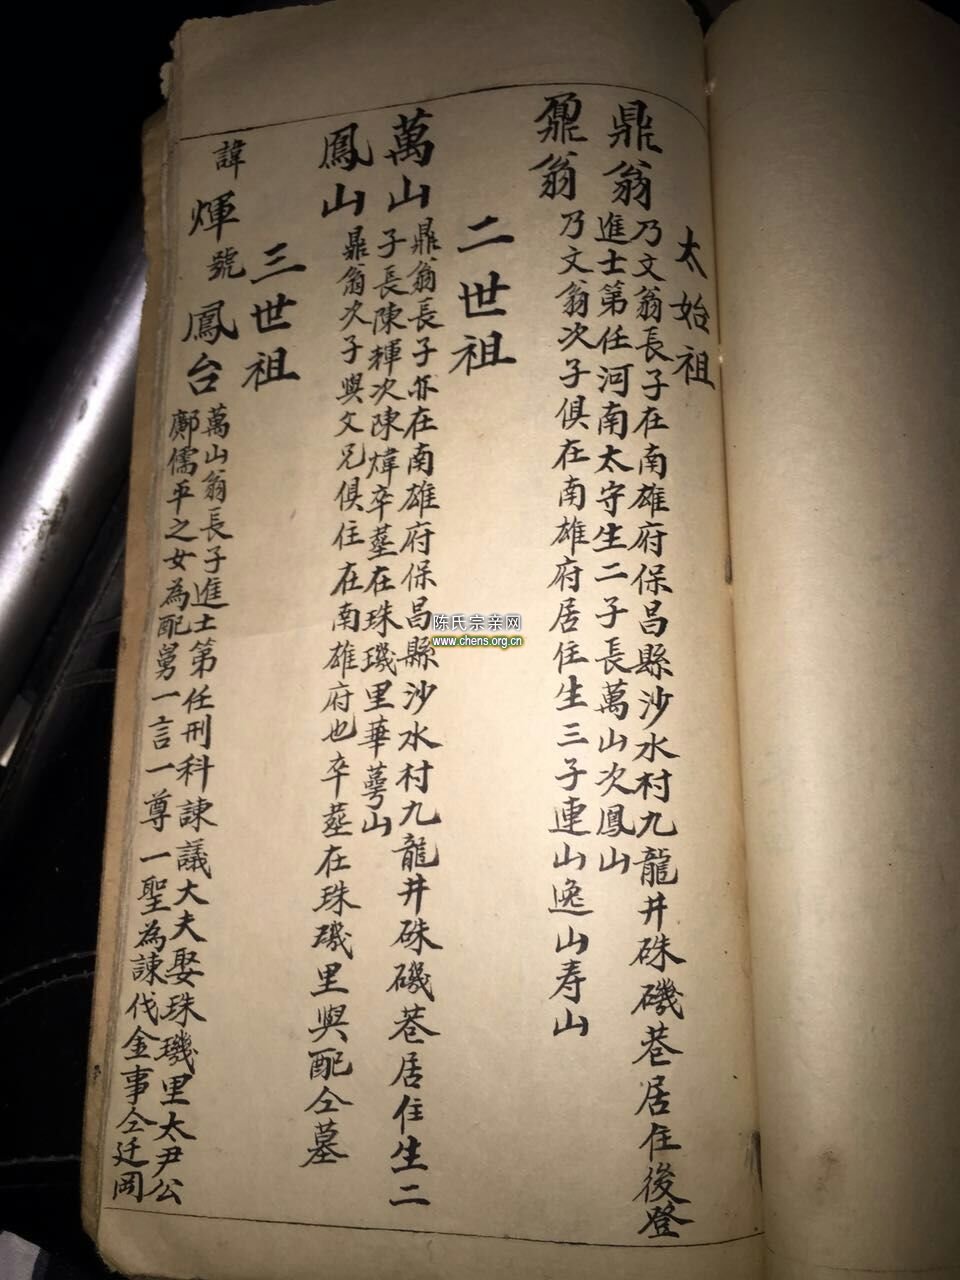 太始祖
鼎翁
乃文翁長子在南雄府保昌縣沙水村九龍井硃磯巷居住後登
進士第任河南太守生二子長萬山次鳳山
鼐翁
乃文翁次子俱在南雄府居住生三子連山逸山寿山
二世祖
萬山
鼎翁長子亦在南雄府保昌縣沙水村九龍井硃磯巷居住生二
子長陳輝次陳煒卒塟在珠璣里華萼山
鳳山
鼎翁次子與文兄俱住在南雄府也卒塟在珠磯里與配仝墓
三世祖
諱煇號鳳台
萬山翁長子進士第任刑科諫議大夫娶珠璣里太尹公
鄺儒平之女為配舅一言一尊一聖為諫伐金事仝迁岡
陈氏宗亲网
www.chens.org.cn